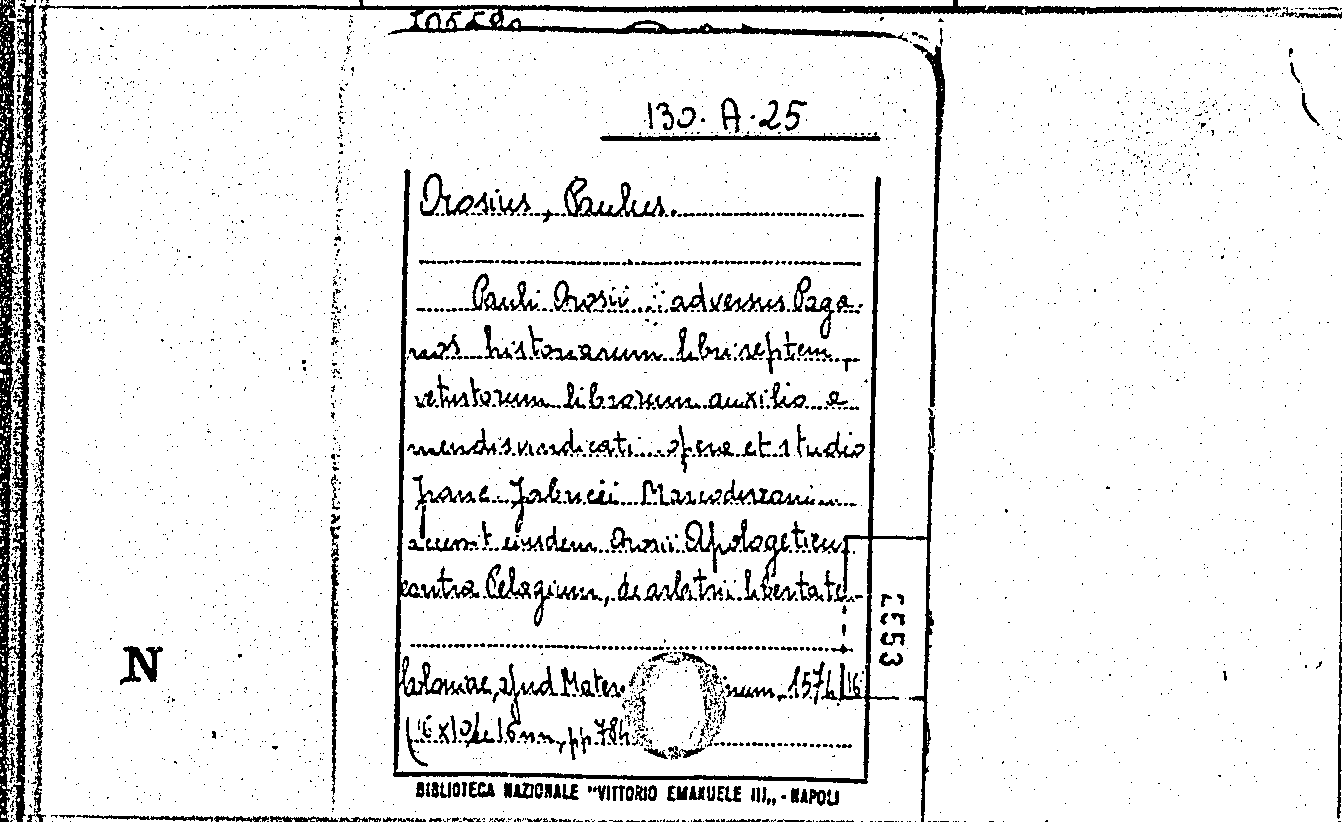 130. A. 25
Orosius, Paulus.
Pauli Orosii ... adversus Paga-
nos historiarum libri septem,
vetustorum librorum auxilio e
mendis vindicati opera et studio
Franc. Fabricii Marcodurani
contra Pelagium, de arbitrii libertate
Coloniae, apud Mater num, 1574 16
pp 784
3557
N
BIBLIOTECA NAZIONALE "VITTORIO EMANUELE III„ - NAPOLI